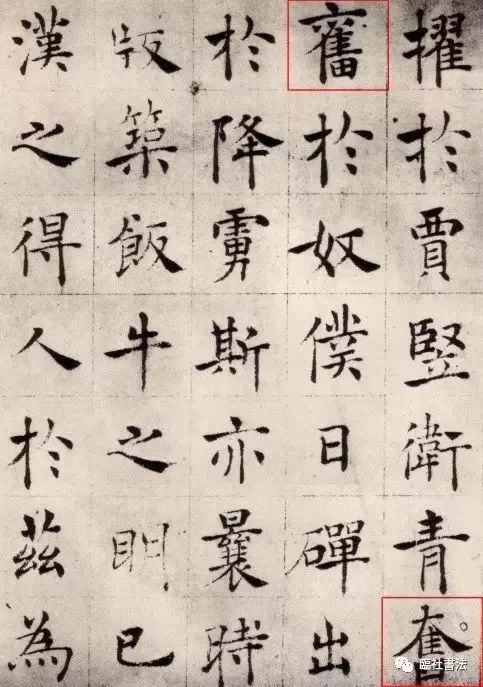 擢於賈竪衛青奮
奮於奴僕日磾出
於降虜斯亦曩時
版築飯牛之明已
漢之得人於茲為
臨社書法